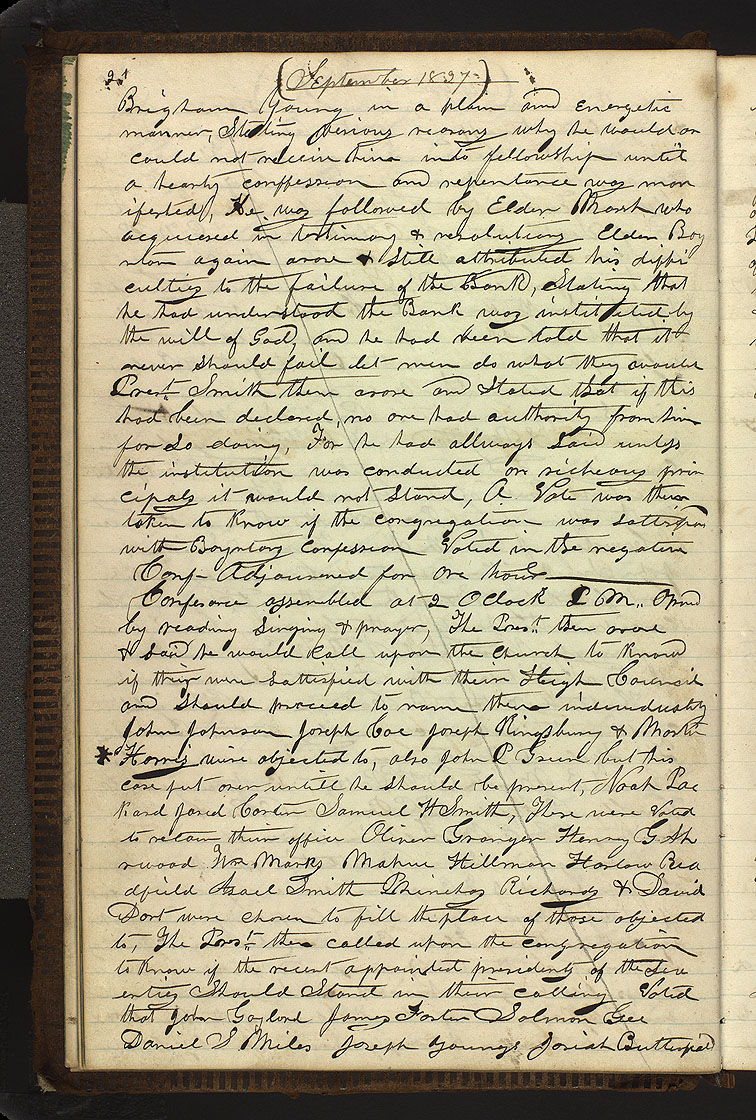 21
(September 1837)
Brigham Young in a plain and energetic
manner, Stating verious reasons why he would or
could not receive him into fellowship until
a hearty conffession and repentance was man
ifested, He was followed by Elder Marsh who
acquiesed in testimony & resolutions Elder Boy
nton again arose & Still attributed his diffi
culties to the failure of the Bank, Stating that
he had understood the Bank was instituted by
the will of God, and he had been told that it
never should fail let men do what they would
Prest Smith then arose and Stated that if this
had been declared, no one had authority from him
for So doing, For he had allways Said unless
the institution was conducted on richeous prin
cipals it would not Stand, A Vote was then
taken to know if the congregation was sattisfied
with Boyntons Confession Voted in the negative
Conf- Adjourned for one hour
Conferance assembled at 2 OClock P M.. Opend
by reading Singing & prayer, The Prest then arose
& Said he would call upon the church to know
if their were sattesfied with their High Council
and should proceed to name them individually
John Johnson Joseph Coe Joseph Kingsbury & Martin
* Harris were objected to, also John P Green but his
case put over untill he should be present, Noah Pac
kard Jared Carter Samuel H Smith, These were Voted
to retain their office Oliver Granger Henry G. Sh
erwood Wm Marks Mahue Hillman Harlow Rea
dfield Asael Smith Phinehas Richards & David
Dort were chosen to fill the place of those objected
to, The Prest then called upon the congregation
to know if the recent appointed presidents of the Sev
enties Should Stand in their calling Voted
that John Gaylord James Foster Salmon Gee
Daniel S Miles Joseph Youngs Josiah Butterfield